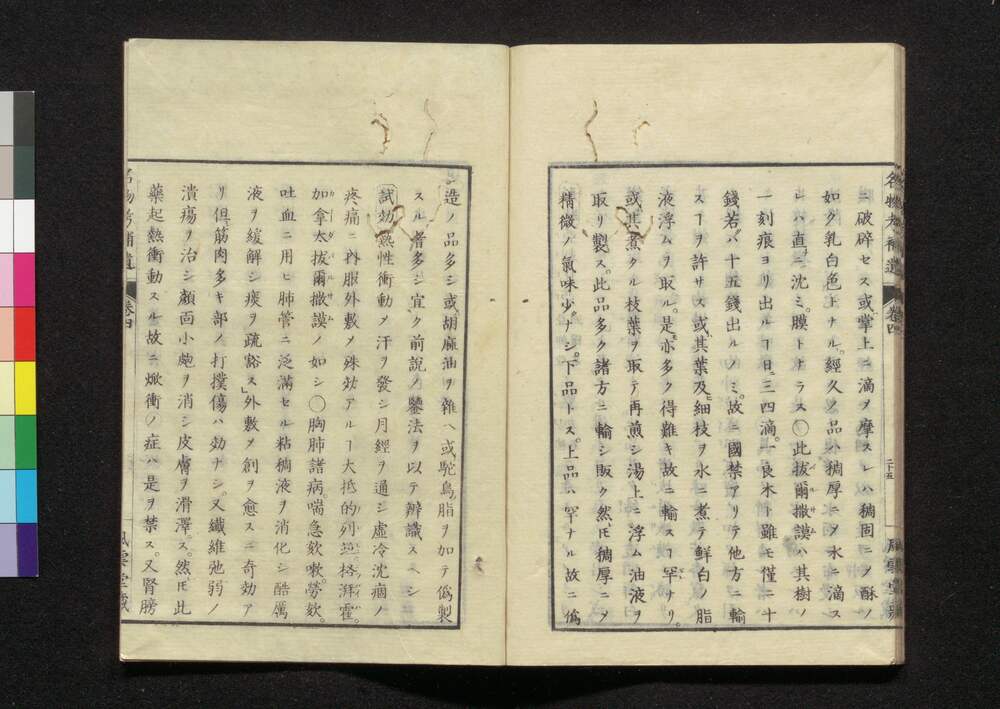 ニ破碎セス或掌上ニ滴メ摩スレハ稠固ニメ酥ノ
如ク乳白色トナル經久ノ品ハ稠厚ニメ水ニ滴ス
レハ直ニ沈ミ膜トナラス〇此拔爾撒謨ハ其樹ノ
一刻痕ヨリ出ルヿ日ニ三四滴一良木ト雖モ僅ニ十
錢若ハ十五錢出ルノミ故ニ國禁アリテ他方ニ輸
スヿヲ許サス或其葉及細枝ヲ水ニ煮テ鮮白ノ脂
液浮ムヲ取ル是亦多ク得難キ故ニ輸スヿ罕ナリ
或其煮タル枝葉ヲ取テ再煎シ湯上ニ浮ム油液ヲ
取リ製ス此品多ク諸方ニ輸シ販ク然𪜈稠厚ニメ
精微ノ氣味少ナシ下品トス上品ハ罕ナル故ニ僞
名物考補遺 卷四 二十五
造ノ品多シ或胡麻油ヲ雜ヘ或駝鳥脂ヲ加テ僞製
スル者多シ宜ク前說ノ鑒法ヲ以テ辨識スヘシ
試効 熱性衝動メ汗ヲ發シ月經ヲ通シ虛冷沈痼ノ
疼痛ニ內服外敷メ殊効アルヿ大抵的列並格湃霍
加拿太拔爾撒謨ノ如シ〇胸肺諸病喘急欬嗽勞欬
吐血ニ用ヒ肺管ニ泛滿セル粘稠液ヲ消化シ酷厲
液ヲ緩解シ痰ヲ疏豁ス」外敷メ創ヲ愈スニ奇効ア
リ但筋肉多キ部ノ打撲傷ハ効ナシ又纖維弛弱ノ
潰瘍ヲ治シ顏面小皰ヲ消シ皮膚ヲ滑澤ス然𪜈此
藥起熱衝動スル故ニ焮衝ノ症ハ是ヲ禁ス又腎膀
名物考補遺 卷四 風雲堂藏